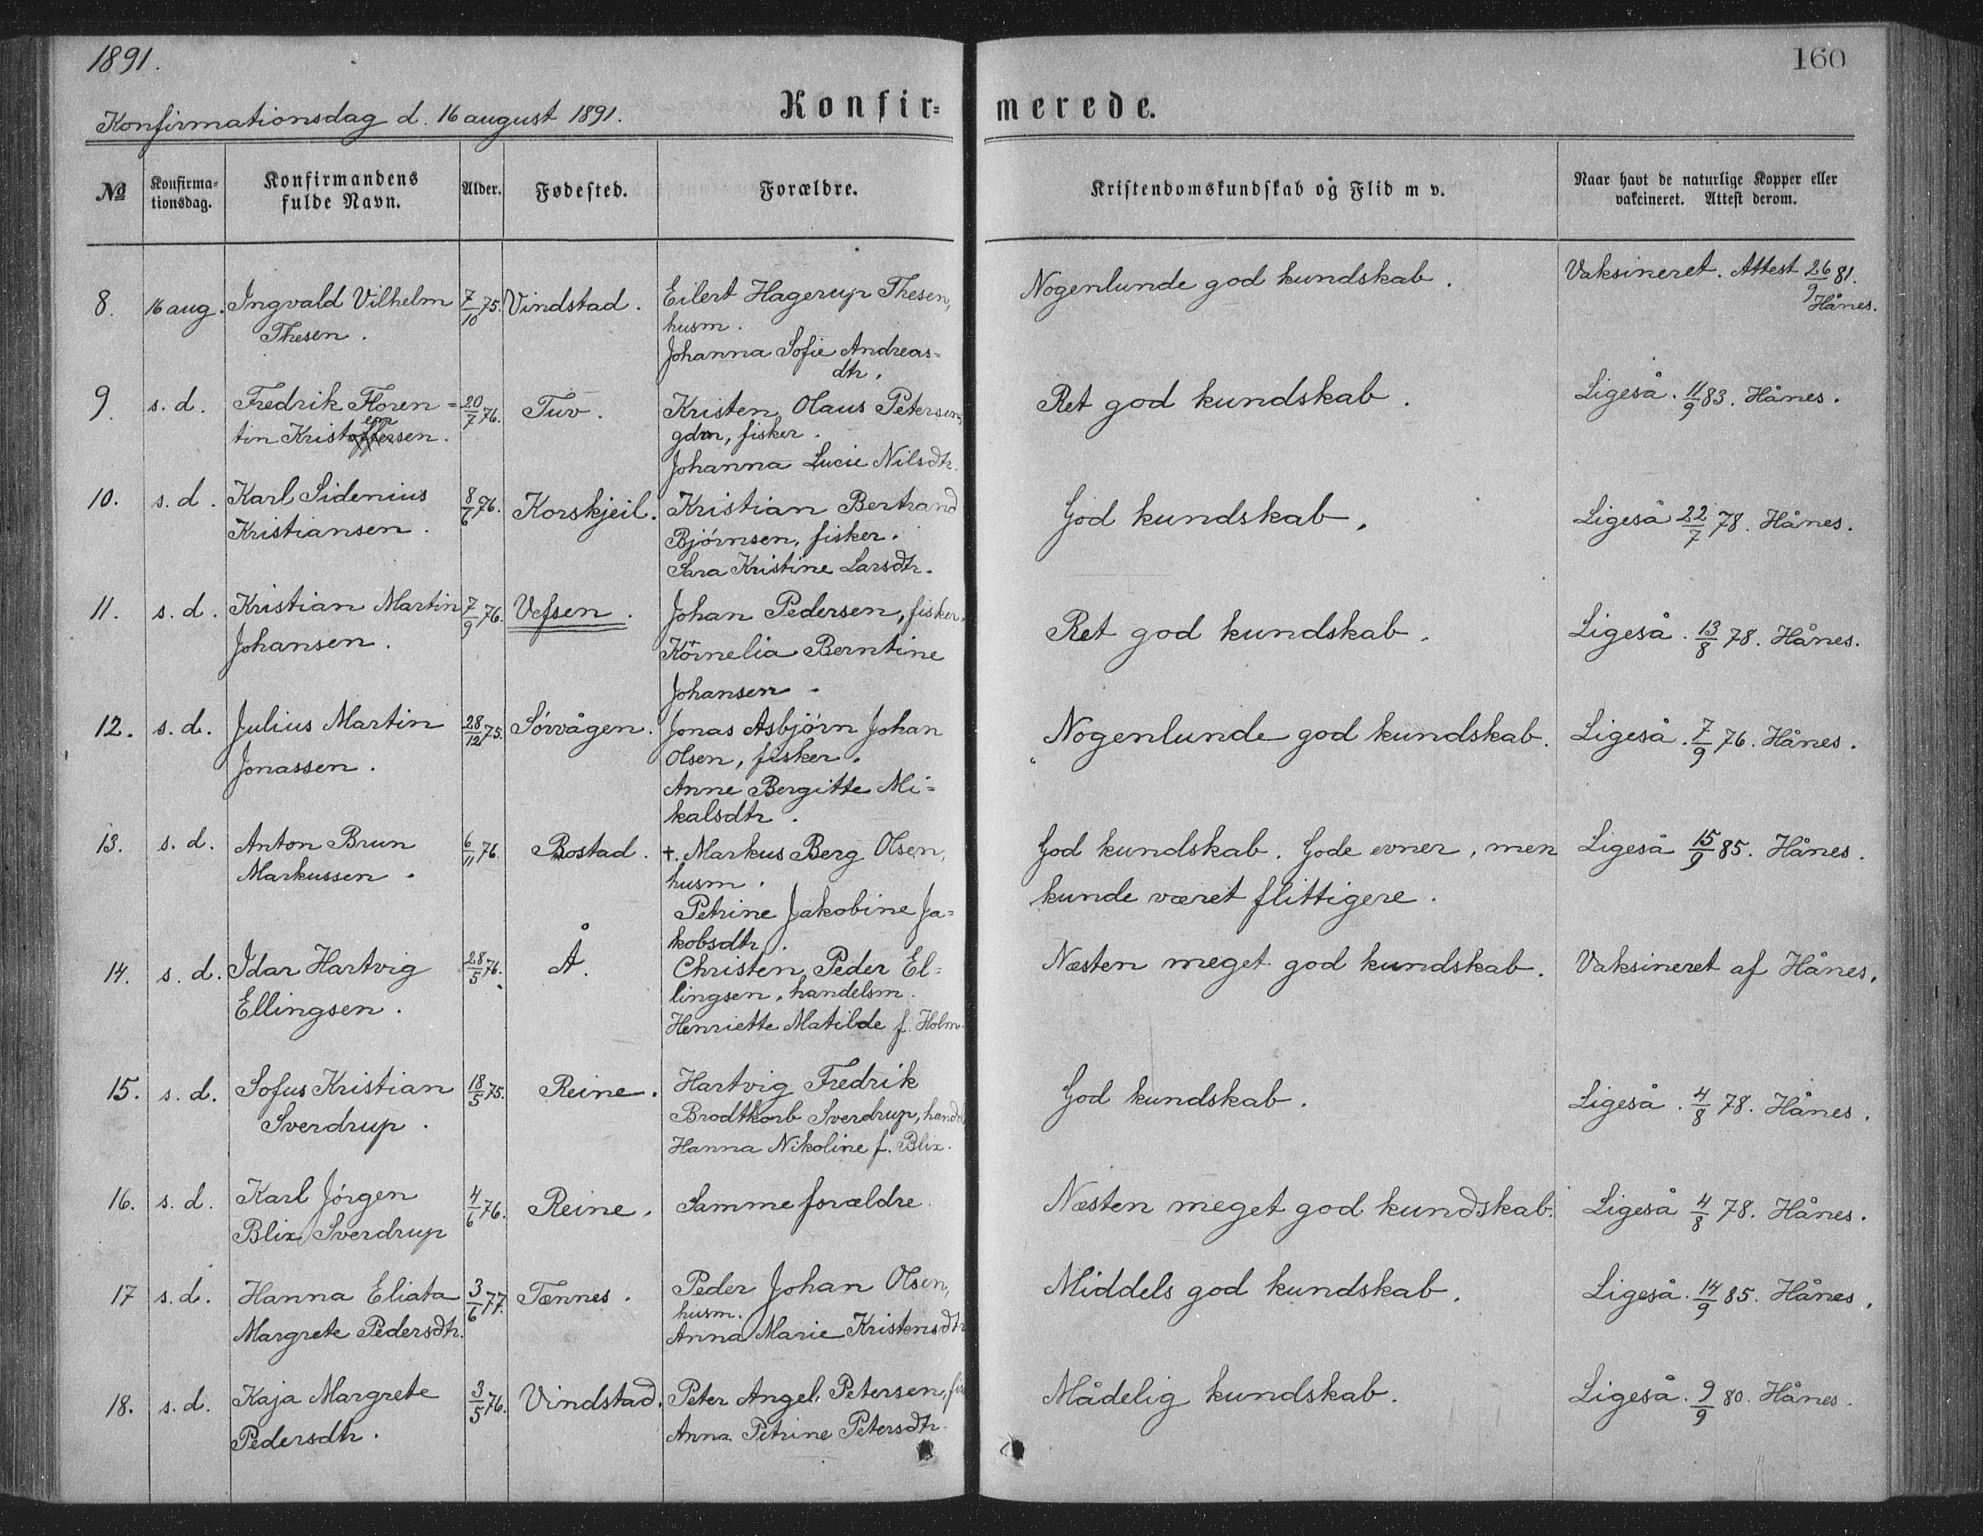 1891.
160
Konfirmationsdag d. 16 august 1891.
Konfir= merede.
№ Konfirma= tionsdag. Konfirmandens fulde Navn. Alder. Fødested. Forældre. Kristendomskundskab og Flid m v. Naar havt de naturlige Kopper eller vakcineret. Attest derom.
8. 16 aug. Ingvald Vilhelm 7/10 75. Vindstad. Eilert Hagerup Thesen, Nogenlunde god kundskab. Vaksineret. Attest 26/9 81.
Thesen. husm. Hånes.
Johanna Sofie Andreas=
dtr.
9. s. d. Fredrik Floren= 20/7 76. Tuv. Kristen Olaus Petersen, Ret god kundskab. Ligeså. 11/9 83. Hånes.
tin Kristoffersen. gdm, fisker.
Johanna Lucie Nilsdtr.
10. s. d. Karl Sidenius 8/6 76. Korskjeil. Kristian Bertrand God kundskab. Ligeså 22/7 78. Hånes.
Kristiansen. Bjørnsen, fisker.
Sara Kristine Larsdtr.
11. s. d. Kristian Martin 7/9 76. Vefsen. Johan Pedersen, fisker. Ret god kundskab. Ligeså. 13/8 78. Hånes.
Johansen. Kornelia Berntine
Johansen.
12. s. d. Julius Martin 28/12 75. Sørvågen. Jonas Asbjørn Johan Nogenlunde god kundskab. Ligeså. 7/9 76. Hånes.
Jonassen. Olsen, fisker.
Anne Bergitte Mi=
kalsdtr.
13. s. d. Anton Brun 6/11 76. Bostad. †. Markus Berg Olsen, God kundskab. Gode evner, men Ligeså 15/9 85. Hånes.
Markussen. husm. kunde været flittigere.
Petrine Jakobine Ja=
kobsdtr.
14. s. d. Idar Hartvig 28/5 76. Å. Christen Peder El= Næsten meget god kundskab. Vaksineret af Hånes.
Ellingsen. lingsen, handelsm.
Henriette Matilde f. Holm.
15. s. d. Sofus Kristian 18/5 75. Reine. Hartvig Fredrik God kundskab. Ligeså. 4/8 78. Hånes.
Sverdrup. Brodtkorb Sverdrup,
Hanna Nikoline f. Blix.
16. s. d. Karl Jørgen 4/6 76. Reine. Samme forældre Næsten meget god kundskab. Ligeså 4/8 78. Hånes.
Blix Sverdrup
17 s. d. Hanna Eliata 3/6 77. Tennes. Peder Johan Olsen, Middels god kundskab. Ligeså. 14/9 85. Hånes.
Margrete Pedersdtr. husm.
Anna Marie Kristensdtr
18. s. d. Kaja Margrete 3/5 76. Vindstad. Peter Angel Petersen, Mådelig kundskab. Ligeså. 9/9 80. Hånes.
Pedersdtr. Anna Petrine Petersdtr.